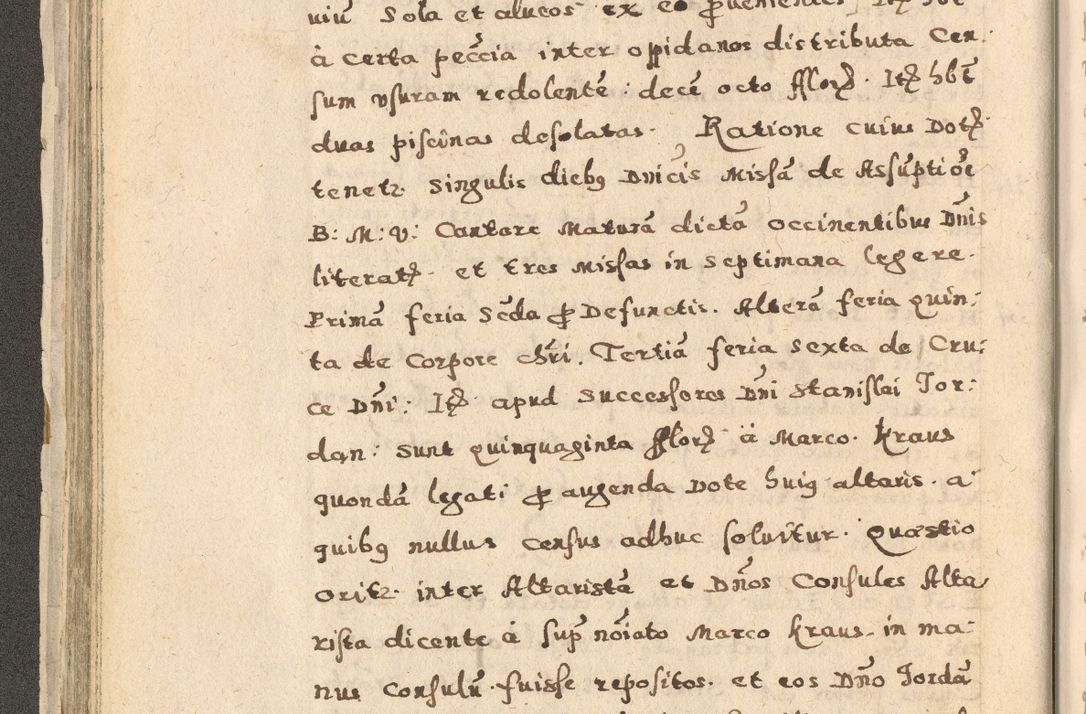 uiū Sola et alueos ex eo ꝓuenientes
à certa peccīa inter oppidanos distributa Cen:
sum vsuram redolentē: decē octo fflorꝫ. Itꝫ hbt̄
duas piscinas desolatas. Ratione cuius Dotꝫ
tenetz. Singulis diebꝫ Dnīcis Missā de Assūptiōe
B: M: V: Cantare Maturā dictā occinentibus Dn̄is
literatꝫ. et tres Missas in septimana legere.
Primā feria Sc̄da ꝓ Defunctis. Alterā feria quin:
ta de Corpore chr̄i. Tertiā feria sexta de Cru:
ce Dn̄i: Itꝫ apud Successores Dn̄i Stanislai Jor:
dan: sunt quinquaginta fflorꝫ à Marco. Kraus
quondā legati ꝓ augenda Dote huiꝫ altaris. a
quibꝫ nullus census adhuc soluitur. Quæstio
oritz. inter Altaristā et Dn̄os Consules Alta
rista dicente à sup̄ nōiato Marco Kraus. in ma:
nus Consulū. fuisse repositos. et eos Dn̄o Jordā